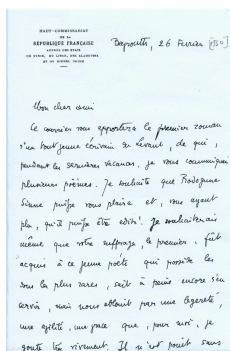 HAUT-COMMISSARIAT
DE LA
RÉPUBLIQUE FRANÇAISE
AUPRÈS DES ETATS
DE SYRIE, DU LIBAN, DES ALAOUITES
ET DU DJEBEL DRUZE
Beyrouth, 26 Février [1930]
Mon cher ami
Ce courrier vous apportera le premier roman
d'un tout jeune écrivain du Levant, de qui,
pendant les dernières vacances, je vous communiquai
plusieurs poèmes. Je souhaite que Rodogune
Sinne puisse vous plaire et, vous ayant
plu, qu'il puisse être édité. Je souhaiterais
même que votre suffrage, le premier, fût
acquis à ce jeune poète qui possède les
dons les plus rares, sait à peine encore s'en
servir, mais nous éblouit par une légèreté,
une agilité, une grace que, pour moi, je
goûte très vivement. Il n'est point sans